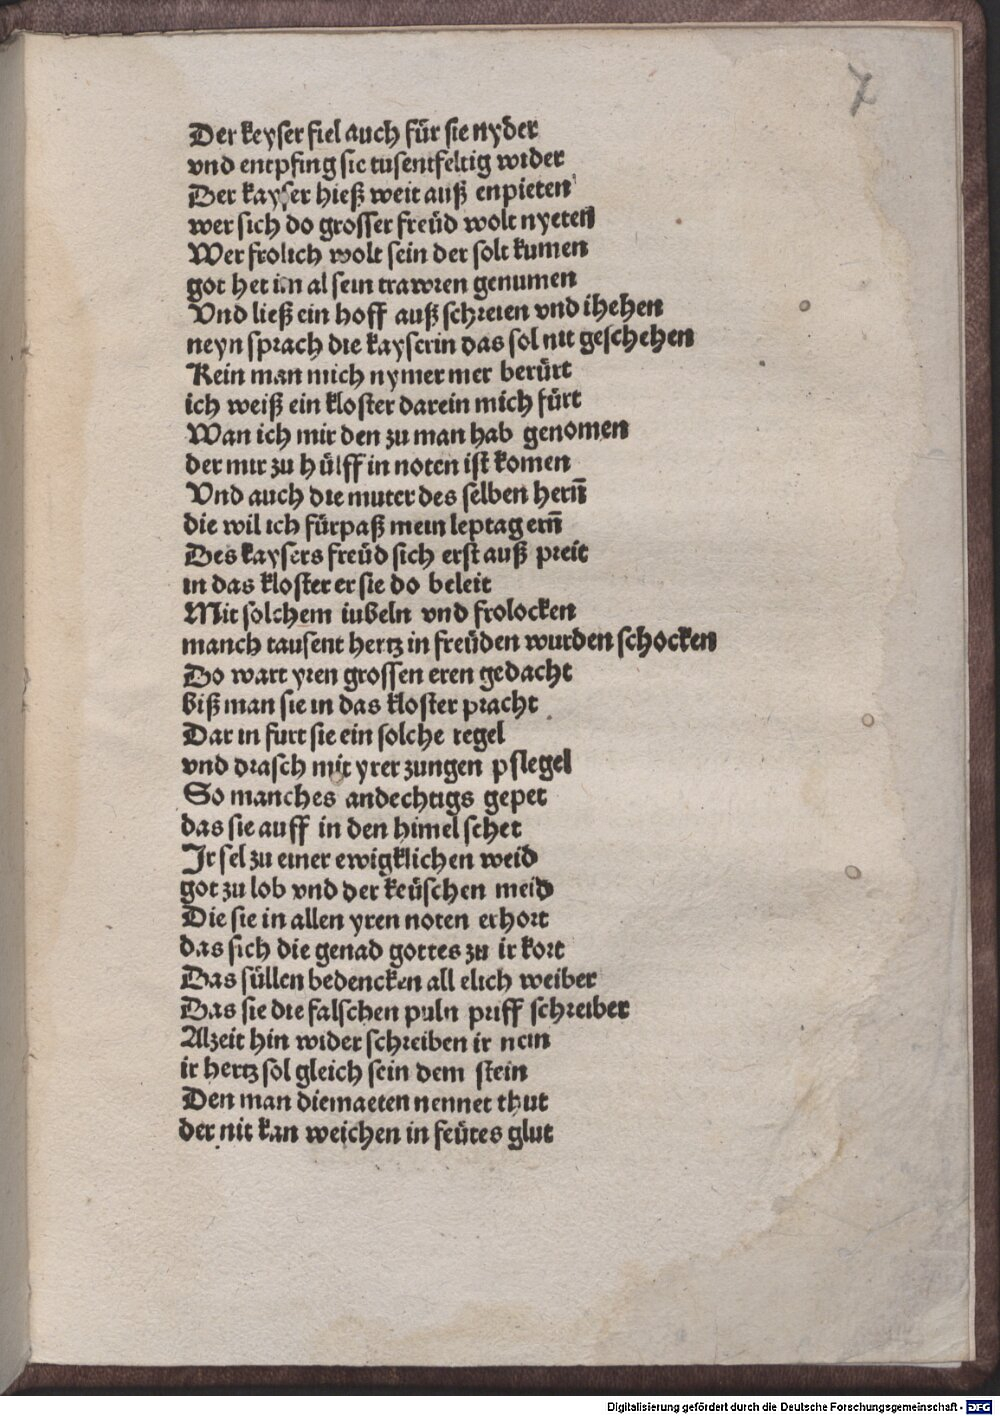 7
Der keyser fiel auch für sie nyder
vnd entpfing sie tusentfeltig wider
Der kayser hieß weit auß enpieten
wer sich do grosser freüd wolt nyeten
Wer frolich wolt sein der solt kumen
got het im al sein trawren genumen
Vnd ließ ein hoff auß schreien vnd ihehen
neyn sprach die kayserin das sol nit geschehen
Kein man mich nymer mer berürt
ich weiß ein kloster darein mich fürt
Wan ich mir den zu man hab genomen
der mir zu hülff in noten ist komen
Vnd auch die muter des selben hern̄
die wil ich fürpaß mein leptag ern̄
Des kaysers freüd sich erst auß preit
in das kloster er sie do beleit
Mit solchem iubeln vnd frolocken
manch tausent hertz in freüden wurden schocken
Do wart yren grossen eren gedacht
biß man sie in das kloster pracht
Dar in furt sie ein solche regel
vnd drasch mit yrer zungen pflegel
So manches andechtigs gepet
das sie auff in den himel schet
Ir sel zu einer ewigklichen weid
got zu lob vnd der keüschen meid
Die sie in allen yren noten erhort
das sich die genad gottes zu ir kort
Das süllen bedencken all elich weiber
Das sie die falschen puln priff schreiber
Alzeit hin wider schreiben ir nein
ir hertz sol gleich sein dem stein
Den man diemaeten nennet thut
der nit kan weichen in feüres glut
Digitalisierung gefördert durch die Deutsche Forschungsgemeinschaft - DFG